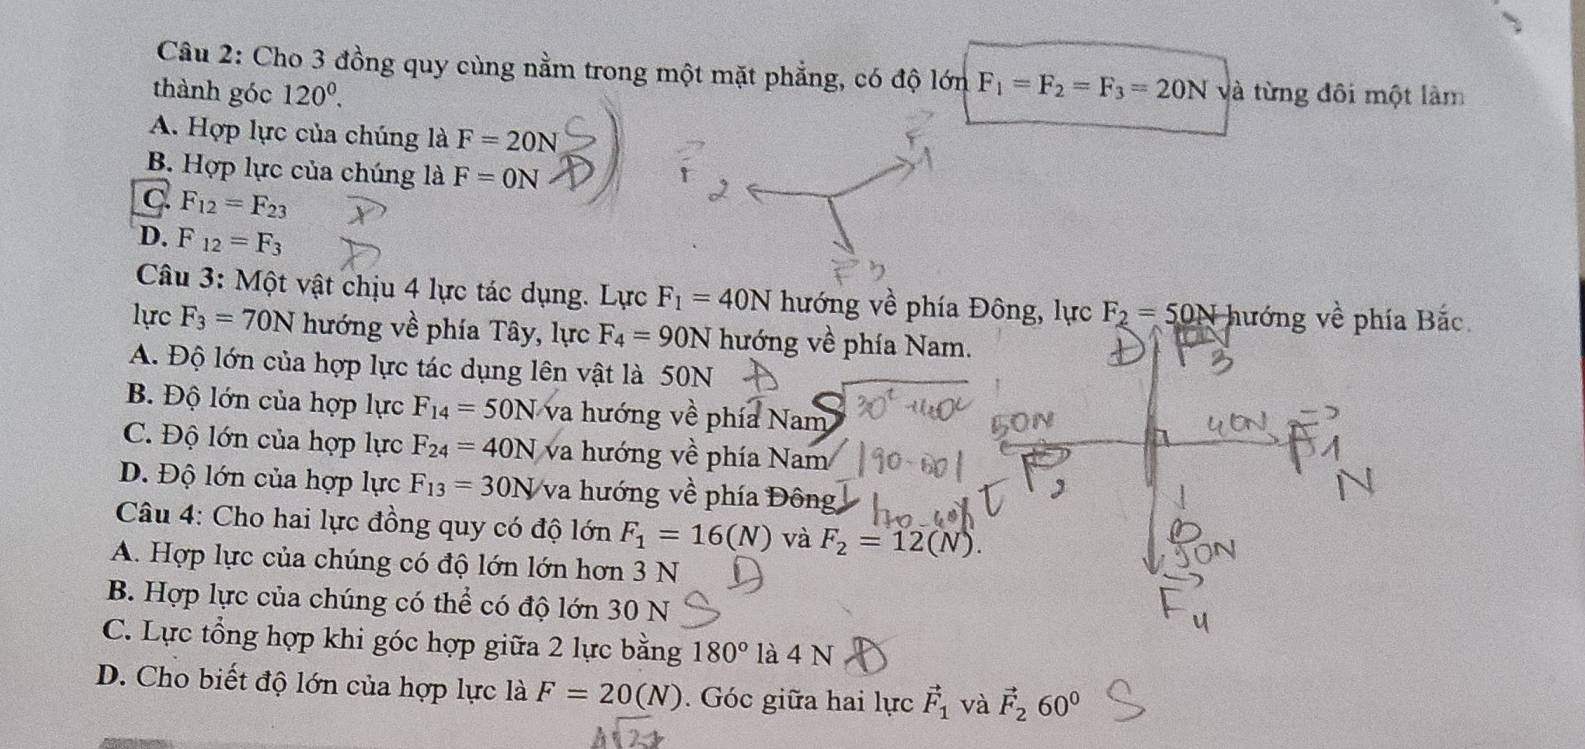 Câu 2: Cho 3 đồng quy cùng nằm trong một mặt phẳng, có độ lớn F₁ = F₂ = F₃ = 20N và từng đôi một làm
thành góc 120⁰.
A. Hợp lực của chúng là F = 20N S
B. Hợp lực của chúng là F = 0N Đ
C. F₁₂ = F₂₃ Đ
D. F ₁₂ = F₃ Đ
2
1
3
Câu 3: Một vật chịu 4 lực tác dụng. Lực F₁ = 40N hướng về phía Đông, lực F₂ = 50N hướng về phía Bắc.
lực F₃ = 70N hướng về phía Tây, lực F₄ = 90N hướng về phía Nam.
A. Độ lớn của hợp lực tác dụng lên vật là 50N Đ
B. Độ lớn của hợp lực F₁₄ = 50N va hướng về phía Nam S
C. Độ lớn của hợp lực F₂₄ = 40N va hướng về phía Nam
D. Độ lớn của hợp lực F₁₃ = 30N va hướng về phía Đông
Đ
50N
40N
F⃗₁
N
T
B
F⃗₄
Câu 4: Cho hai lực đồng quy có độ lớn F₁ = 16(N) và F₂ = 12(N).
A. Hợp lực của chúng có độ lớn lớn hơn 3 N Đ
B. Hợp lực của chúng có thể có độ lớn 30 N S
C. Lực tổng hợp khi góc hợp giữa 2 lực bằng 180° là 4 N Đ
D. Cho biết độ lớn của hợp lực là F = 20(N). Góc giữa hai lực F⃗₁ và F⃗₂ 60⁰ S